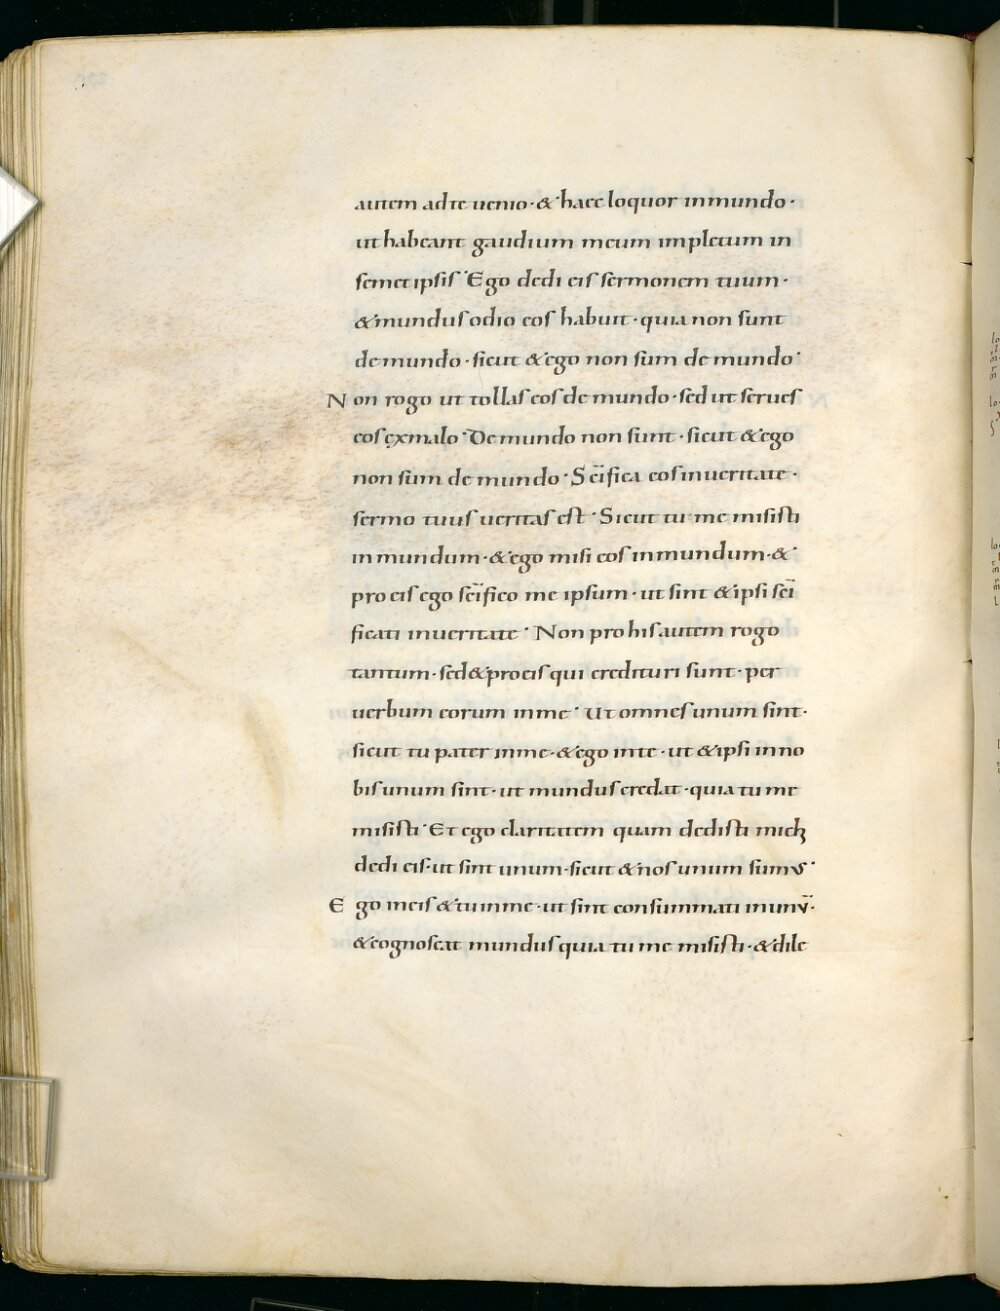 autem ad te uenio · & haec loquor in mundo ·
ut habeant gaudium meum impletum in
semet ipsis · Ego dedi eis sermonem tuum ·
& mundus odio eos habuit · quia non sunt
de mundo · sicut & ego non sum de mundo ·
Non rogo ut tollas eos de mundo · sed ut serues
eos ex malo · De mundo non sunt · sicut & ego
non sum de mundo · Sc̄ifica eos in ueritate ·
sermo tuus ueritas est · Sicut tu me misisti
in mundum · & ego misi eos in mundum · &
pro eis ego sc̄ifico me ipsum · ut sint & ipsi sc̄i
ficati in ueritate · Non pro his autem rogo
tantum · sed & pro eis qui credituri sunt · per
uerbum eorum in me · Ut omnes unum sint ·
sicut tu pater in me · & ego in te · ut & ipsi in no
bis unum sint · ut mundus credat · quia tu me
misisti · Et ego claritatem quam dedisti mich
dedi eis · ut sint unum · sicut & nos unum sumus ·
Ego in eis & tu in me · ut sint consummati in unū ·
& cognoscat mundus quia tu me misisti · & dile